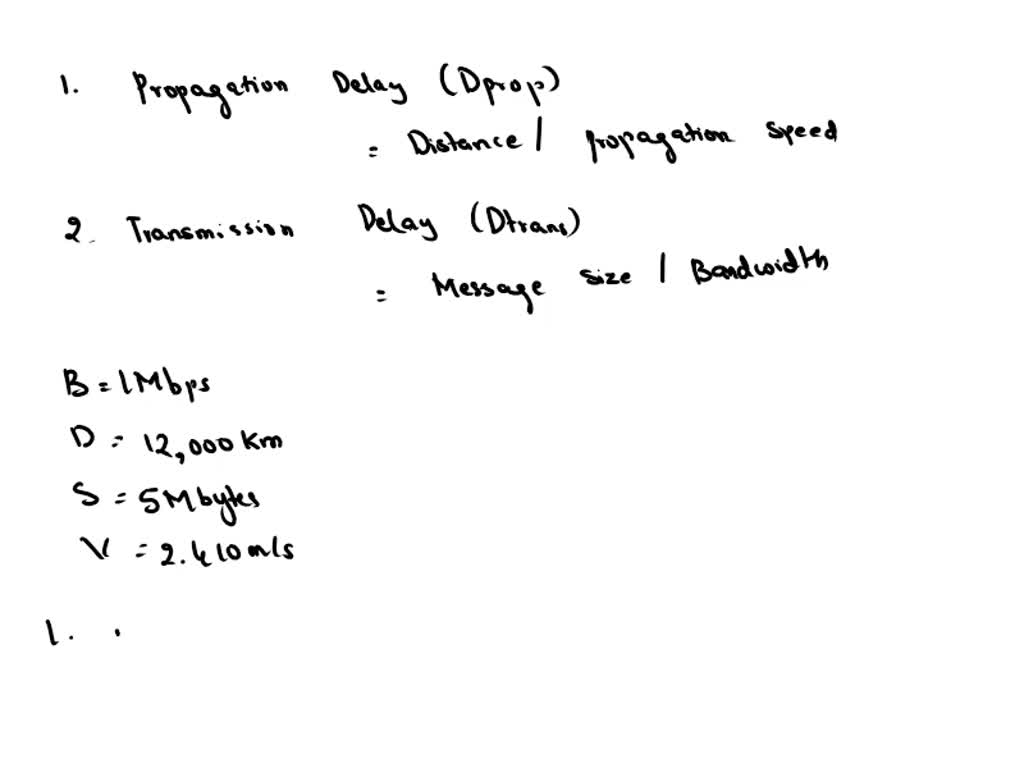 1. Propagation Delay (Dprop)
= Distance / propagation speed
2. Transmission Delay (Dtrans)
= Message size / Bandwidth
B = 1Mbps
D = 12,000 Km
S = 5Mbytes
V = 2.410m/s
1. .